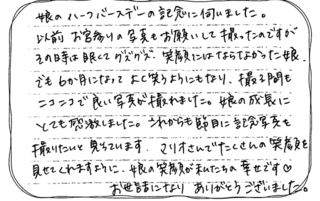 娘のハーフバースデーの記念に伺いました。
以前 お宮参りの写真もお願いして撮ったのですが
その時は眠くてグズグズ、笑顔にはならなかった娘。
でも6か月になって よく笑うようにもなり、撮る間も
ニコニコで良い写真が撮れました。娘の成長に
とても感激しました。これからも節目に記念写真を
撮りたいと思っています。マリオさんでたくさんの笑顔を
見せてくれますように、娘の笑顔が私たちの幸せです♡
お世話になり ありがとうございました。